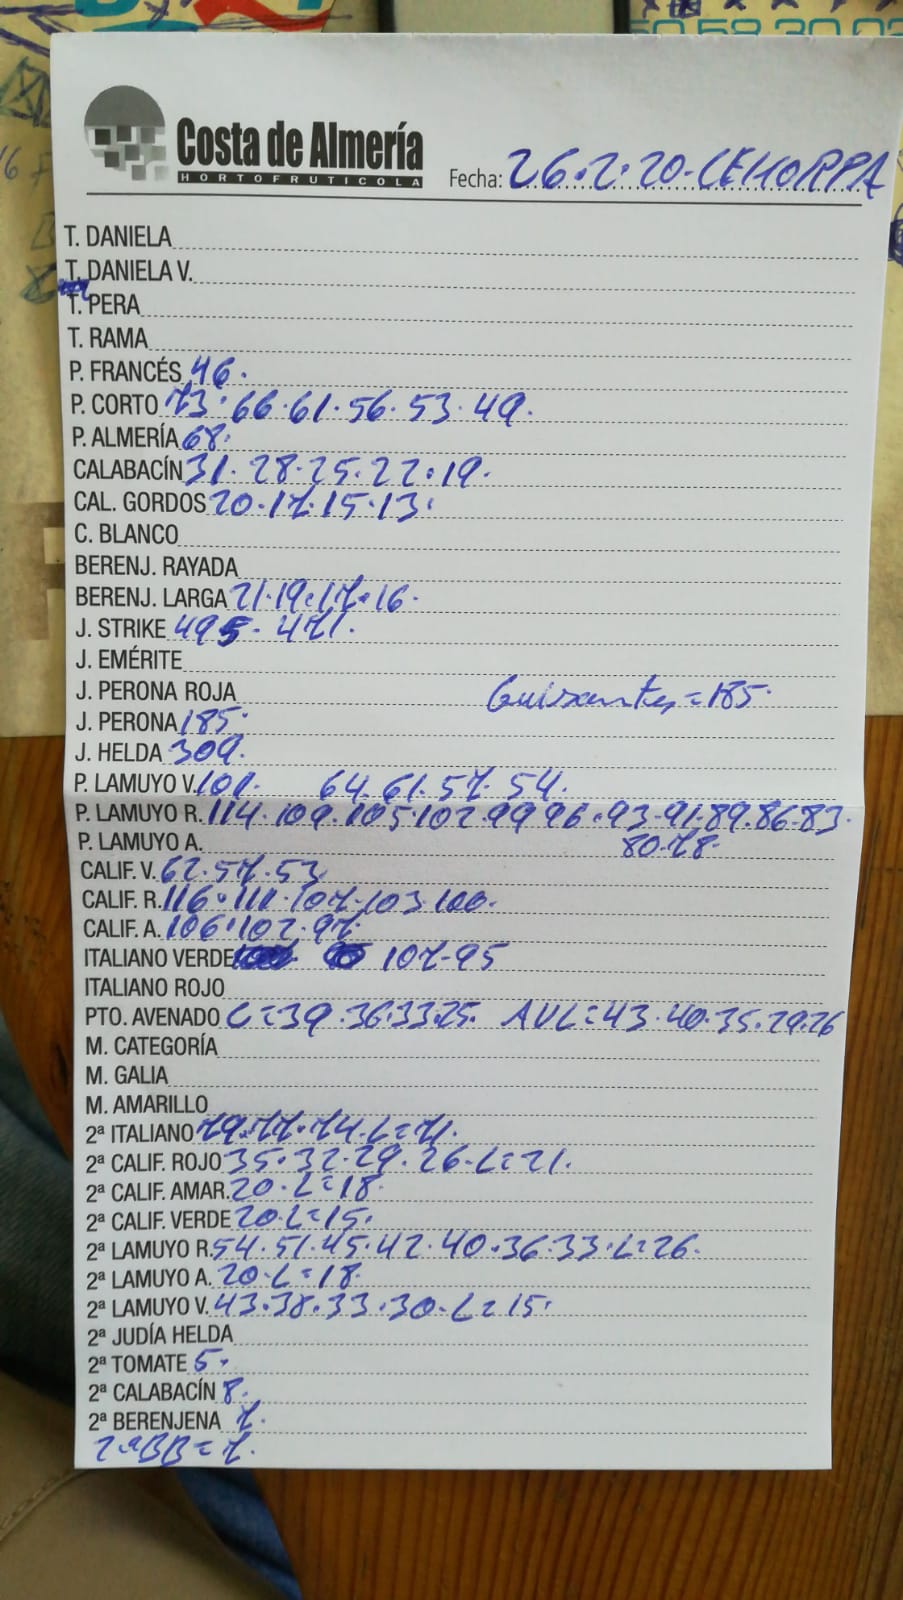 Costa de Almería
HORTOFRUTICOLA
Fecha: 26.2.20. CEHORPA
T. DANIELA
T. DANIELA V.
T. PERA
T. RAMA
P. FRANCÉS 46.
P. CORTO 73.66.61.56.53.49.
P. ALMERÍA 68.
CALABACÍN 31.28.25.22.19.
CAL. GORDOS 20.17.15.13.
C. BLANCO
BERENJ. RAYADA
BERENJ. LARGA 21.19.17.16.
J. STRIKE 495-471.
J. EMÉRITE
J. PERONA ROJA Guisantes=185.
J. PERONA 185.
J. HELDA 309.
P. LAMUYO V. 101. 64.61.57.54.
P. LAMUYO R. 114.109.105.102.99.96.93.91.89.86.83.
P. LAMUYO A. 80.78.
CALIF. V. 62.57.53
CALIF. R. 116.111.107.103.100.
CALIF. A. 106.102.97.
ITALIANO VERDE 107-95
ITALIANO ROJO
PTO. AVENADO C=39.36.33.25. AVL=43.40.35.29.26
M. CATEGORÍA
M. GALIA
M. AMARILLO
2ª ITALIANO 79.77.74.L=71.
2ª CALIF. ROJO 35.32.29.26.L=21.
2ª CALIF. AMAR. 20.L=18.
2ª CALIF. VERDE 20.L=15.
2ª LAMUYO R. 54.51.45.42.40.36.33.L=26.
2ª LAMUYO A. 20.L=18.
2ª LAMUYO V. 43.38.33.30.L=15.
2ª JUDÍA HELDA
2ª TOMATE 5.
2ª CALABACÍN 8.
2ª BERENJENA 7.
2ªBB=7.